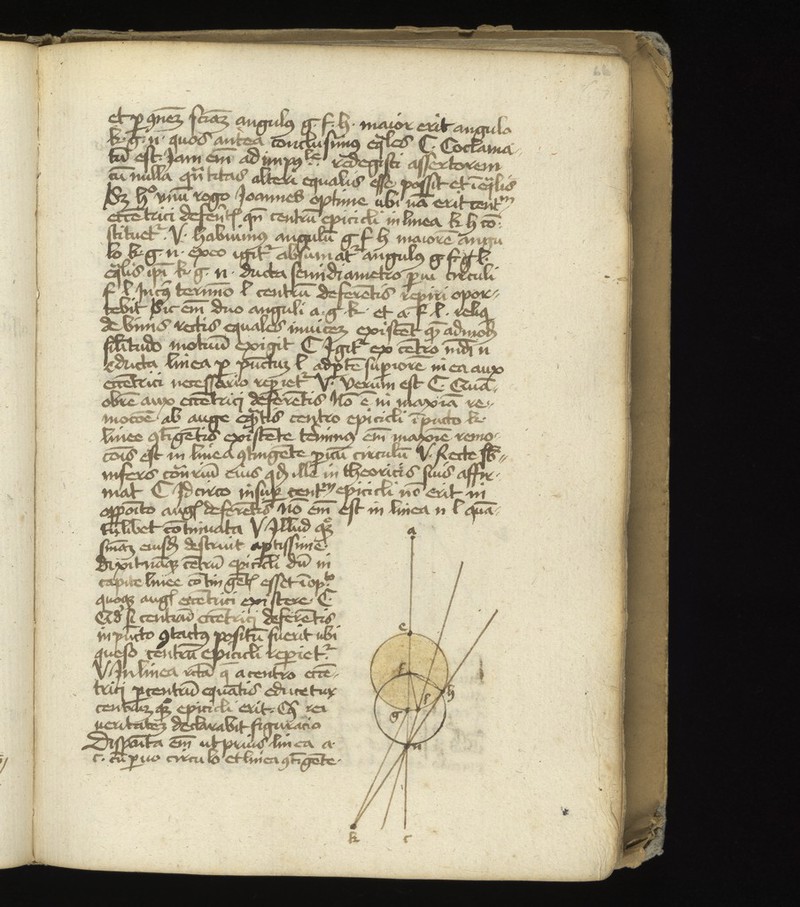 et per quem sciam angulus g.f.h. maior erit angulo
k.g.n. quos antea conclusimus eqles C. Coclama
tu est Jam em ad impole redegisti assertorem
cu nulla qntitas alteri equalis esse possit et ieqlis
Sz ho vnu rogo Joannes optime ubi na erit centrm
eccentrici deferetis qn centru epicicli in linea k h co
stituetr. V. habuimus angulu g f h maiore angu
lo k.g.n. exco igitr absumatr angulus g f l.
eqlis ipi k.g.n. ducta semidiametro parui circuli
f l Jn cuius termino l centru deferetis repiri opor
tebit Sic em duo anguli a.g.k. et a.f.l. reliq
de binis rectis equales inuicem existent quem admodu
silitudo motuu exigit C Jgitr ex cetro mdi n
educta linea p punctuz l ad pte supiore in ea aux
eccentrici necessario repietr V. verum est C Qua
obre aux eccentrici deferetis No e in maxia re
motoe ab auge eqntis centro epicicli i puto k
linee gtigetis existente terminus em maxie remo
tois est in linea gtingente pruu circulu V. Recte
infers contrariu eius qd ille in theoricis suis affir
mat C Jdcirco insup centrm epicicli no erit in
opposito augis deferetis No em est in linea n l qua
tulibet cotinuata V Jllud qz
sniaz eiusdem destruit aptissime
dixit namqz cetru epicicli du in
capite linee cotingetis esset i opto
quoqz augis eccentrici existere C.
Qd si centru eccentrici deferetis
in puncto gtactus positu fuerit ubi
queso centru epicicli repietr
V. Jn linea recta q a centro ecce
trici p centru equatis educetur
centruz qz epicicli erit. Cuius rei
veritatez declarabit figuracio
Disposita em ut prius linea a
c. cu paruo circulo et linea gtigente
a
e
f
l
h
g
n
k
c